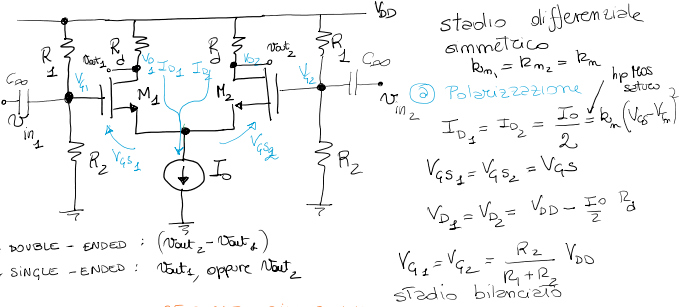 V_DD
R_1
V_out1
R_d
V_D1
I_D1
I_D2
R_d
V_D2
V_out2
R_1
C_∞
V_G1
M_1
M_2
V_G2
C_∞
V_in1
V_in2
R_2
V_GS1
I_0
V_GS2
R_2
DOUBLE-ENDED : (V_out2 - V_out1)
SINGLE-ENDED : V_out1, oppure V_out2
stadio differenziale
simmetrico
k_m1 = k_m2 = k_m
② Polarizzazione
hp MOS
saturo
I_D1 = I_D2 = I_0/2 = k_m (V_GS - V_tm)²
V_GS1 = V_GS2 = V_GS
V_D1 = V_D2 = V_DD - I_0/2 R_d
V_G1 = V_G2 = R_2/(R_1+R_2) V_DD
stadio bilanciato